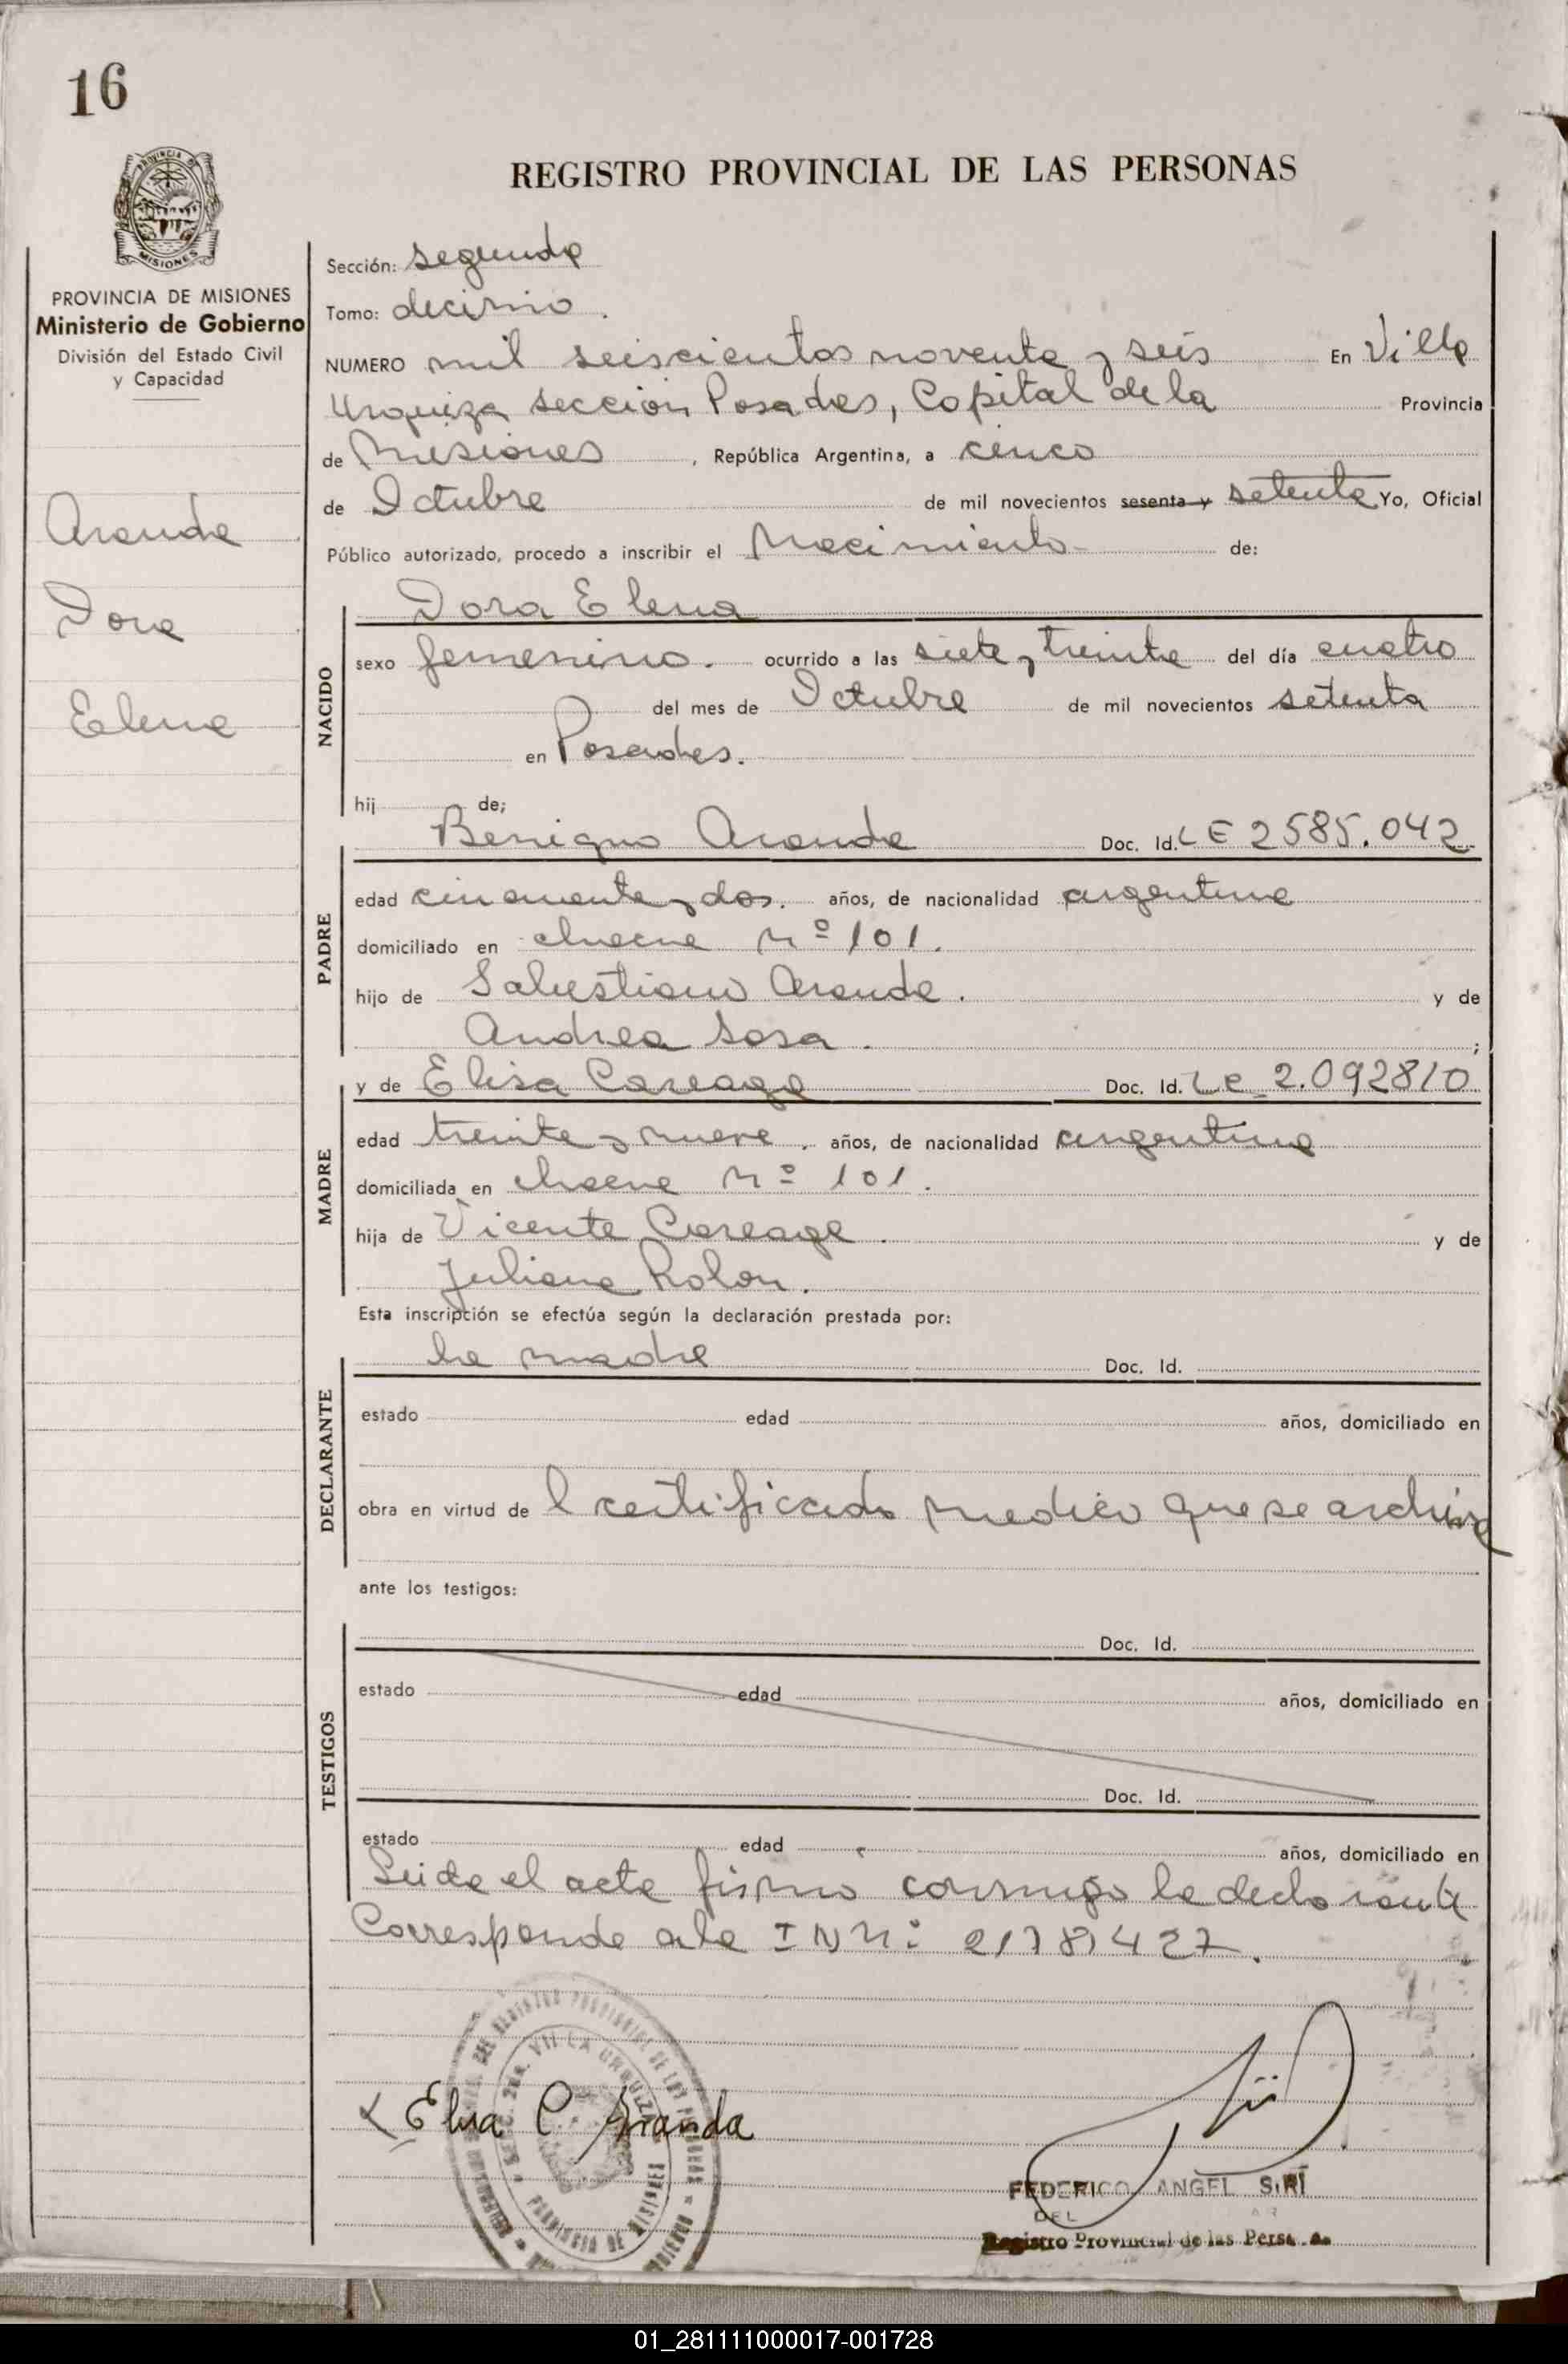 16
REGISTRO PROVINCIAL DE LAS PERSONAS
PROVINCIA DE MISIONES
Ministerio de Gobierno
División del Estado Civil
y Capacidad
Aranda
Dora
Elena
Sección: segunda
Tomo: decimo.
NUMERO mil seiscientos noventa y seis En Villa
Urquiza seccion Posadas, Capital de la Provincia
de Misiones, República Argentina, a cinco
de Octubre de mil novecientos sesenta y setenta Yo, Oficial
Público autorizado, procedo a inscribir el Nacimiento de:
NACIDO
Dora Elena
sexo femenino. ocurrido a las siete y treinta del día cuatro
del mes de Octubre de mil novecientos setenta
en Posadas.
hij de;
PADRE
Benigno Aranda Doc. Id. LE 2585.042
edad cincuenta y dos. años, de nacionalidad argentina
domiciliado en Nº 101.
hijo de Salustiano Aranda. y de
Andrea Sosa. ;
MADRE
y de Elisa Careaga Doc. Id. Lc 2.092810
edad treinta y nueve. años, de nacionalidad argentina
domiciliada en Nº 101.
hija de Vicente Careaga. y de
Juliana Rolon.
Esta inscripción se efectúa según la declaración prestada por:
DECLARANTE
La madre Doc. Id.
estado edad años, domiciliado en
obra en virtud de l certificado medico que se archiva
ante los testigos:
TESTIGOS
Doc. Id.
estado edad años, domiciliado en
Doc. Id.
estado edad años, domiciliado en
Leida el acta firmó conmigo la declarante
Corresponde a la I N Nº
VILLA URQUIZA
PROVINCIA DE MISIONES
Elisa C. Aranda
FEDERICO ANGEL SIRI
DEL
Registro Provincial de las Pers
01_281111000017-001728